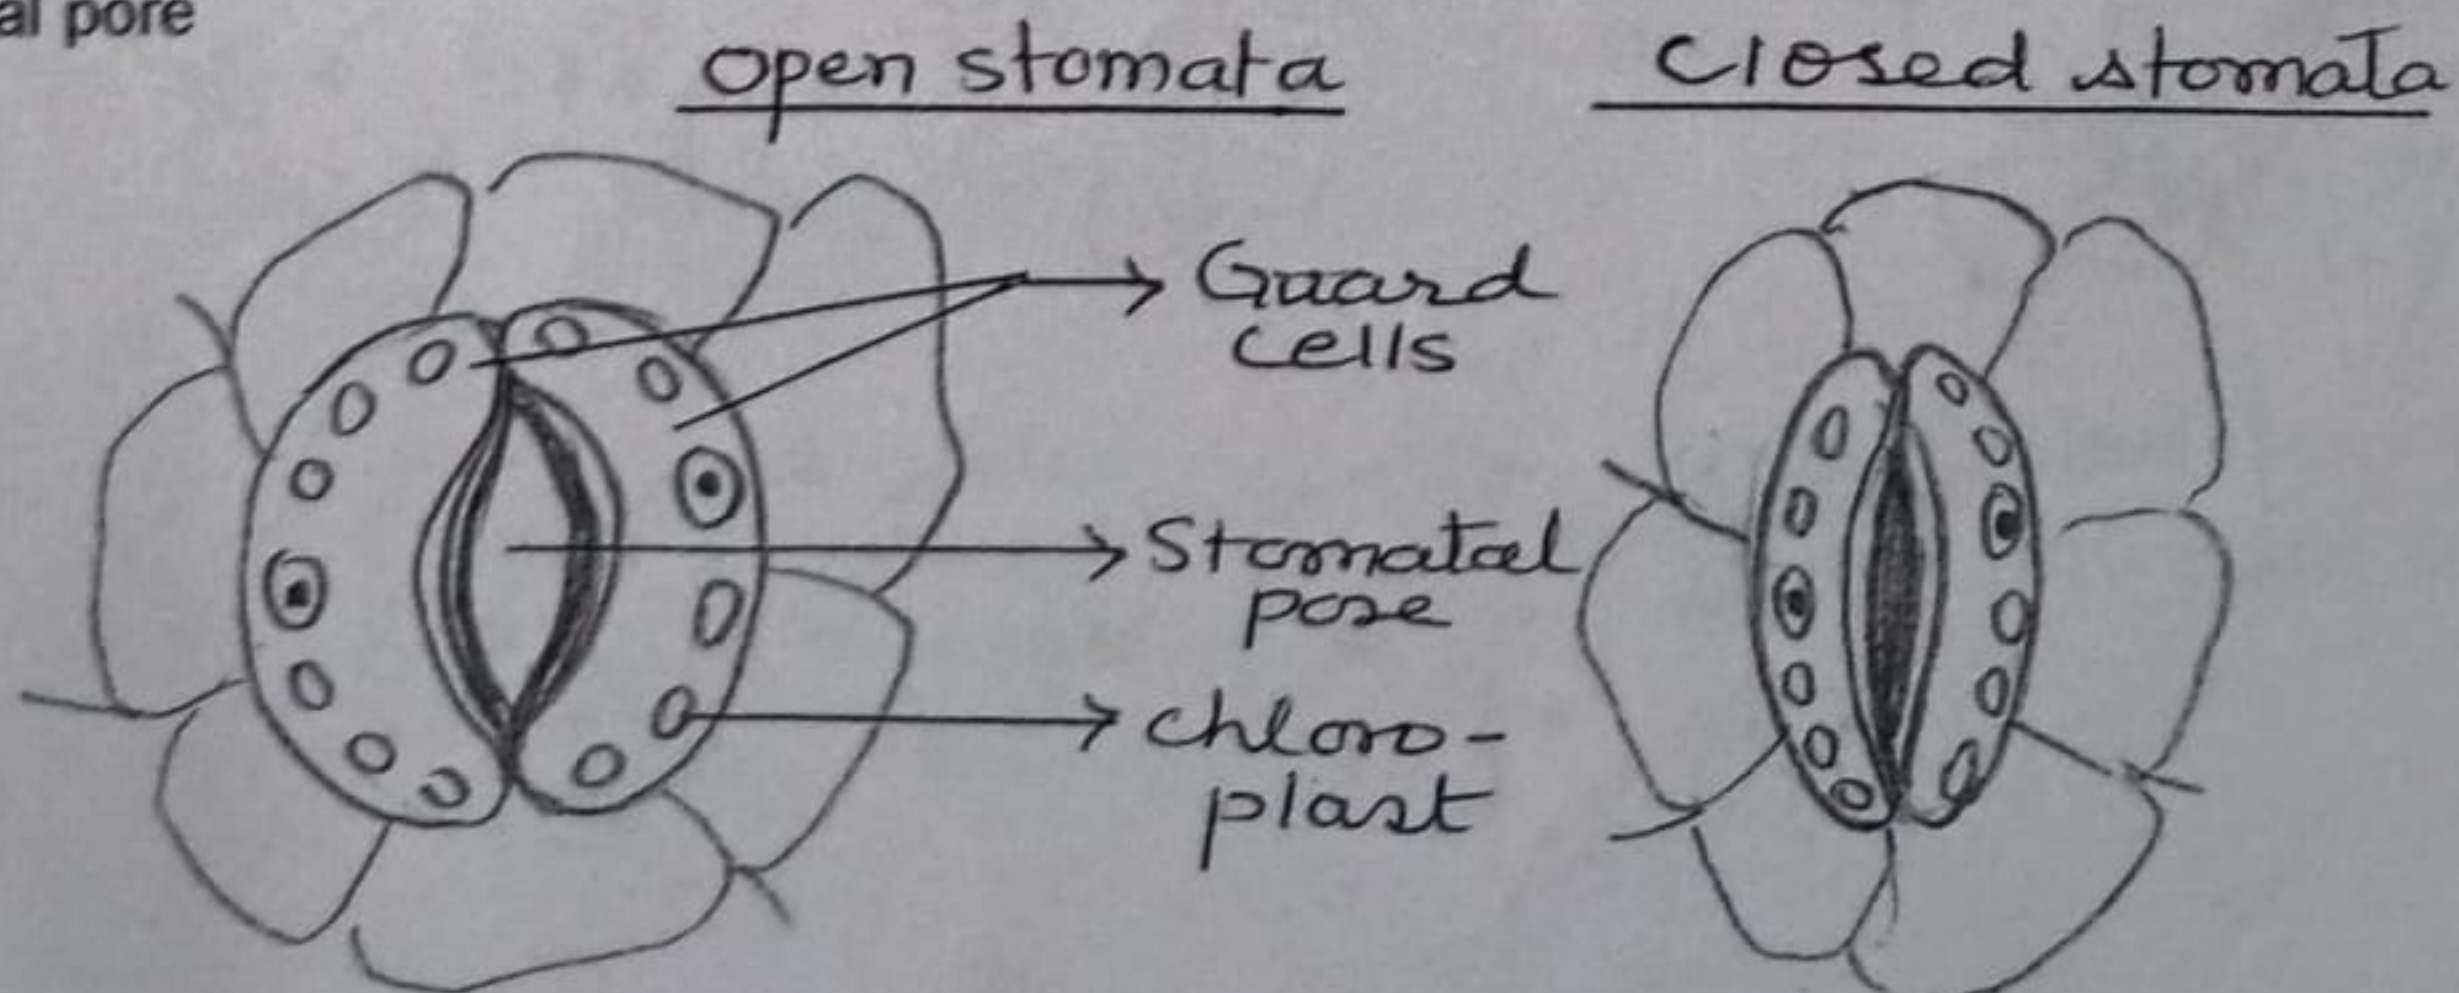 al pore
open stomata
Closed stomata
Guard
cells
Stomatal
pore
chloro-
plast